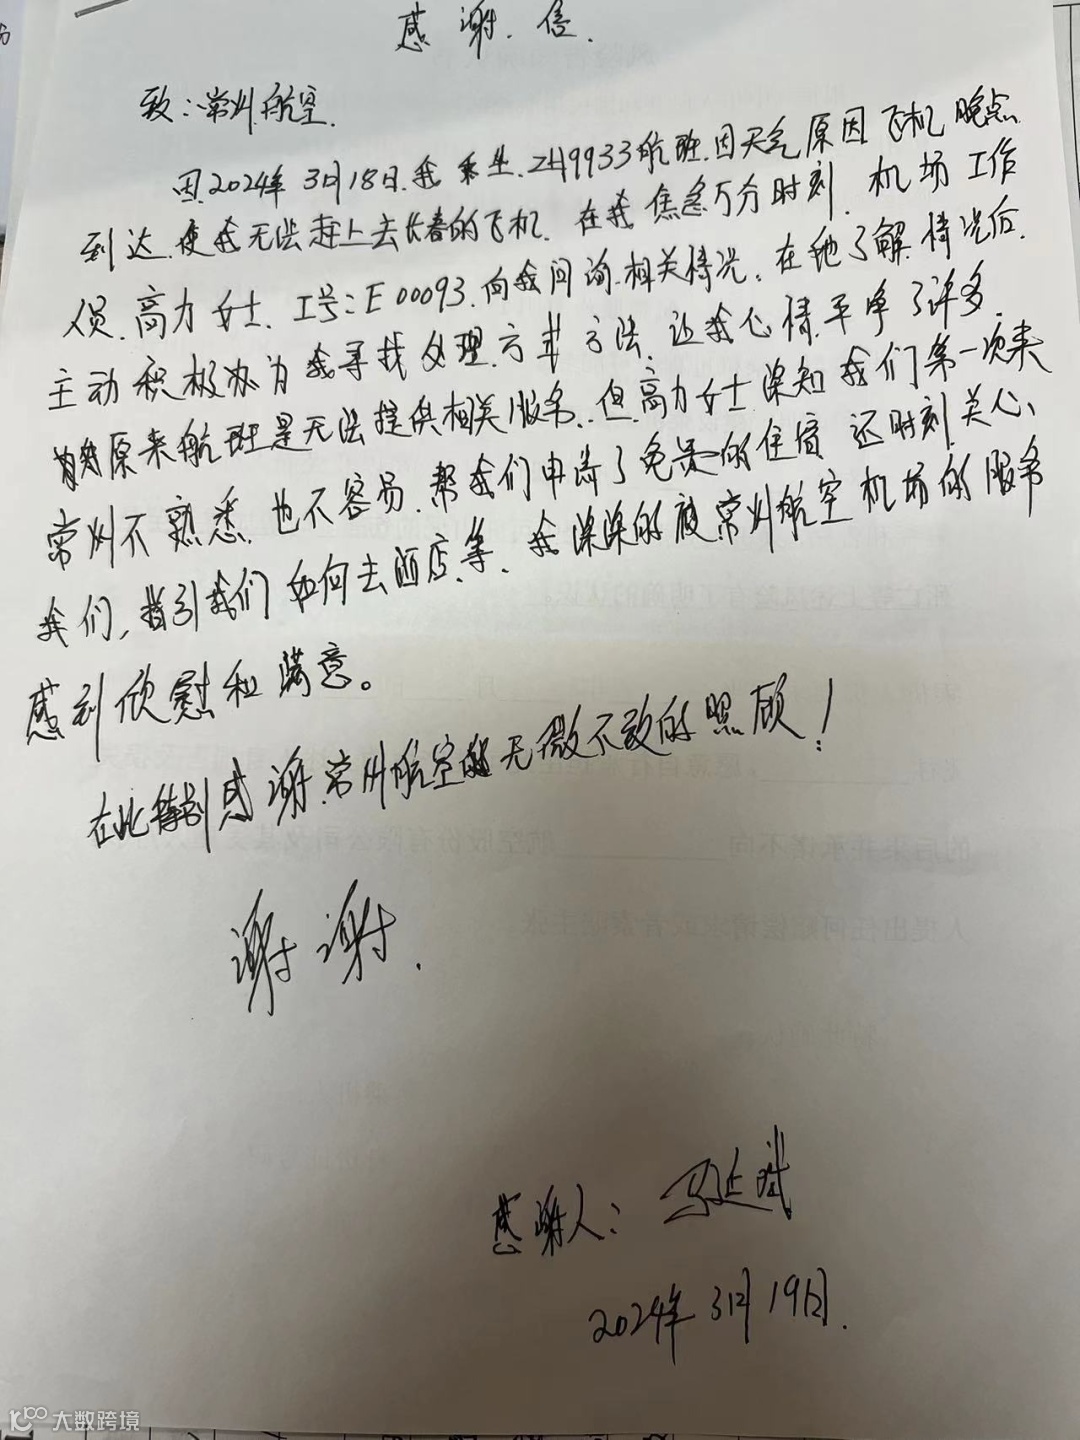 感谢信
致:常州航空.
因2024年3月18日.我乘坐.ZH9933航班.因天气原因飞机晚点
到达.使我无法赶上去长春的飞机.在我焦急万分时刻.机场工作
人员.高力女士.工号:E00093.向我问询.相关情况.在她了解情况后.
主动积极为我寻找处理方方法.让我心情平净了许多.
原来航班是无法提供相关服务.但高力女士深知我们第一次来
常州不熟悉.也不容易.帮我们申请了免费的住宿还时刻关心、
我们,指引我们如何去酒店.等.我深深的被常州航空机场的服务
感到欣慰和满意。
在此特别感谢.常州航空的无微不致的照顾!
谢谢.
感谢人:马延斌
2024年3月19日.
大数跨境